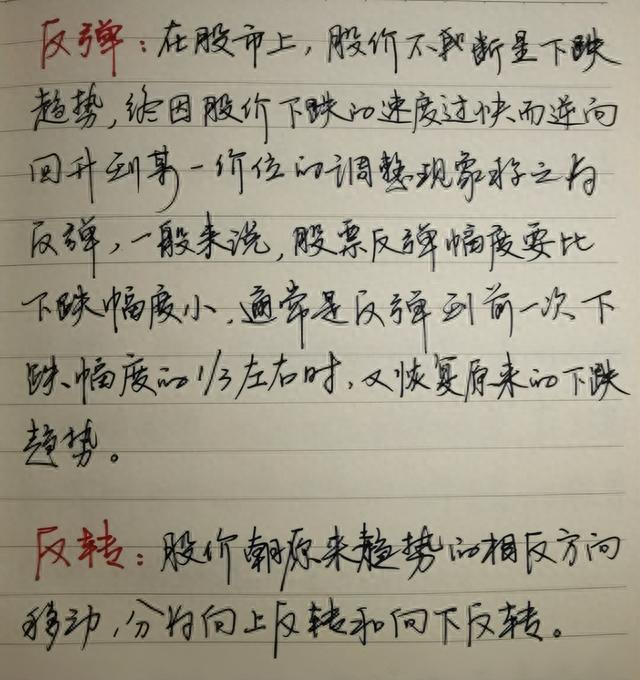 反弹：在股市上，股价不断呈下跌
趋势，终因股价下跌的速度过快而逆向
回升到某一价位的调整现象称之为
反弹，一般来说，股票反弹幅度要比
下跌幅度小，通常是反弹到前一次下
跌幅度的1/3左右时，又恢复原来的下跌
趋势。
反转：股价朝原来趋势的相反方向
移动，分为向上反转和向下反转。